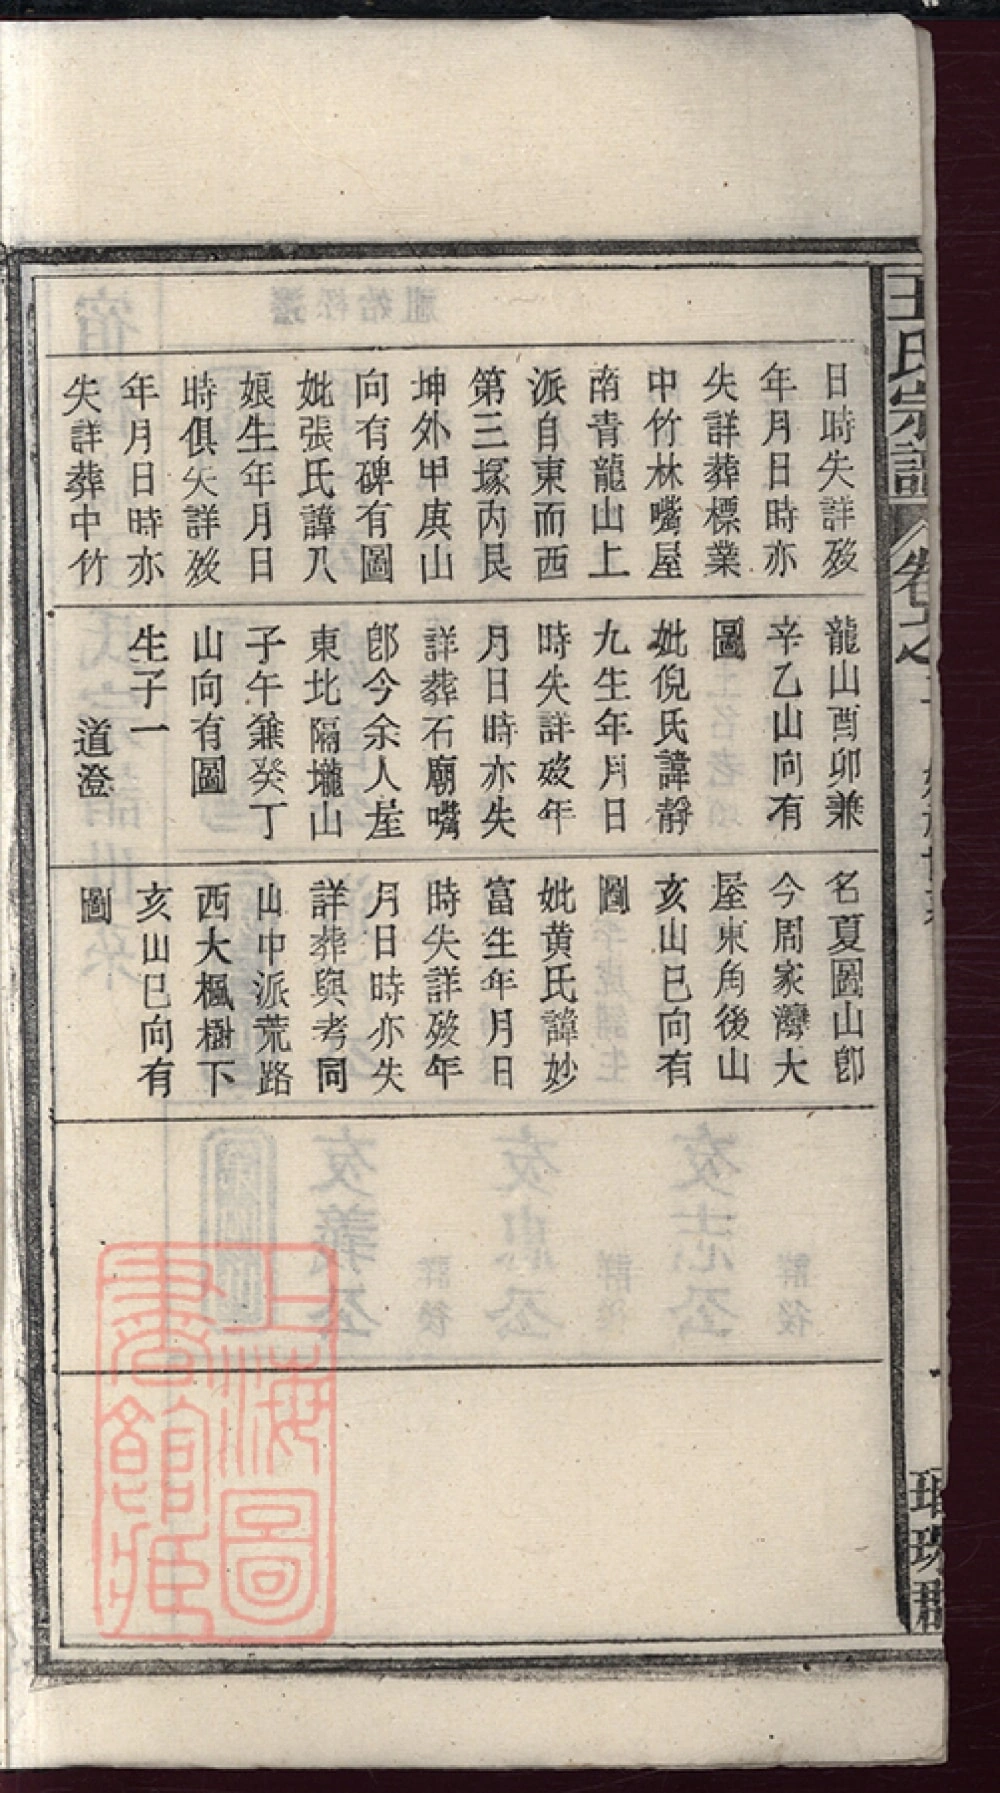 王氏宗譜
卷之
日時失詳歿
年月日時亦
失詳葬標業
中竹林嘴屋
南青龍山上
派自東而西
第三塚內艮
坤外甲庚山
向有碑有圖
妣張氏諱八
娘生年月日
時俱失詳歿
年月日時亦
失詳葬中竹
龍山酉卯兼
辛乙山向有
圖
妣倪氏諱靜
九生年月日
時失詳歿年
月日時亦失
詳葬石廟嘴
卽今余人屋
東北隔壠山
子午兼癸丁
山向有圖
生子一
道澄
名夏圖山卽
今周家灣大
屋東角後山
亥山巳向有
圖
妣黃氏諱妙
富生年月日
時失詳歿年
月日時亦失
詳葬與考同
山中派荒路
西大楓樹下
亥山巳向有
圖
琅琊郡
上海圖
書館藏